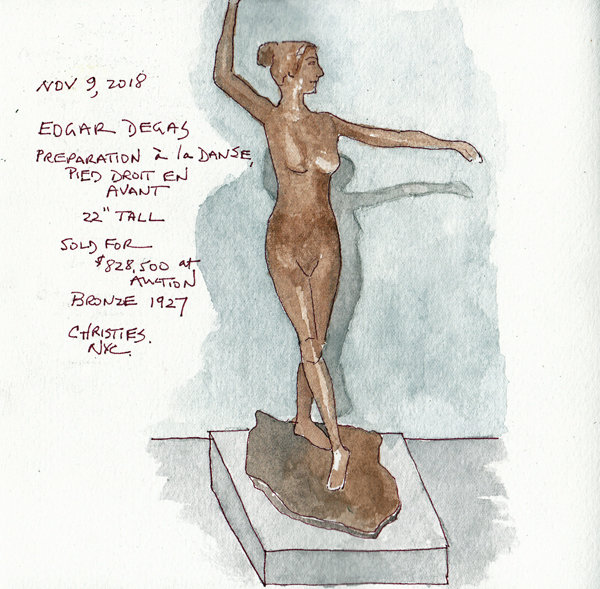 NOV 9, 2018
EDGAR DEGAS
PREPARATION à la DANSE,
PIED DROIT EN
AVANT
22" TALL
SOLD FOR
$828,500 at
AUCTION
BRONZE 1927
CHRISTIES.
NYC.